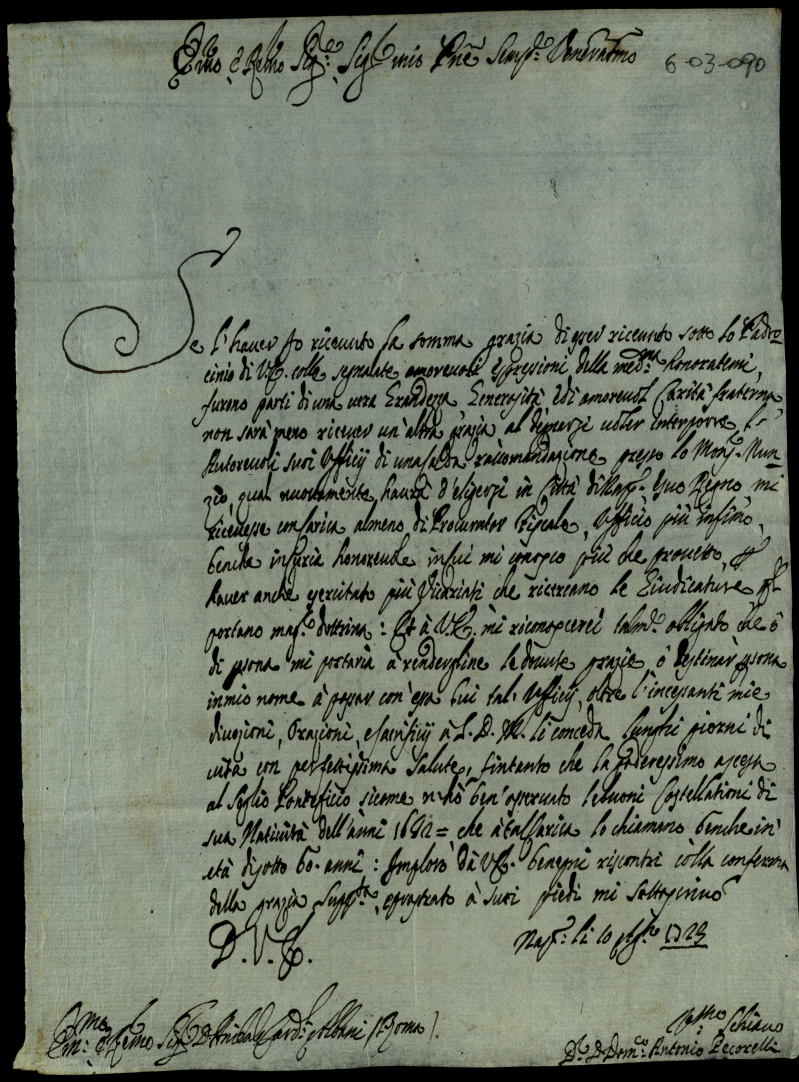 Em̃o, e Remo Sig.re Sig.r mio P̃ne Semp.e Venerat̃mo
6-03-090
Se l'haver Io ricevuto la somma grazia di esser ricevuto sotto lo Padro=
cinio di V.E. colle segnalate amorevoli espressioni della med.ma honoratemi,
furono parti di una vera Grandezza Generosità, e di amorevol Carità fraterna
non sarà meno ricever un'altra grazia al degnarsi voler interporre l'
Autorevoli suoi Ufficij di una salda raccomandazione presso lo Mons.r Nun=
zio, qual nuovamente haverà d'esigersi in Città di Nap.i e suo Regno mi
ricevesse con carica almeno di Procurator Fiscale, Ufficio più infimo,
benche in Curia honorevole in cui mi conosco più che provetto, per
haver anche esercitato più Vicariati che ricercano le Giudicature, e
portano mag.r dottrina: Et à V.E. mi riconoscerei talm.te obligato che ò
di persona mi portaria à rendergline le dovute grazie, ò destinar persona
in mio nome à passar con essa lui tal' Ufficij, oltre l'incessanti mie
divozioni, Orazioni, e sacrificij à S. D. M. li conceda lunghi giorni di
vita con perfettissima salute, fintanto che la vederessimo ascesa
al Seglio Pontificio sicome n'hò ben'osservato le buoni Costellationi di
sua Natività dell'anni 1682= che à tal Carica lo chiamano benche in
età di sotto 60. anni: Imploro dà V.E. benegni riscontri colla conferma
della grazia supp.ta, e prostrato à suoi piedi mi sottoscrivo
D. V. E.
Nap.i li 10 1723
Em.mo e Remo Sig.r D. Annibale Card. Albani (Roma).
V.mo Schiavo
D.r D. Dom.co Antonio Pecorelli